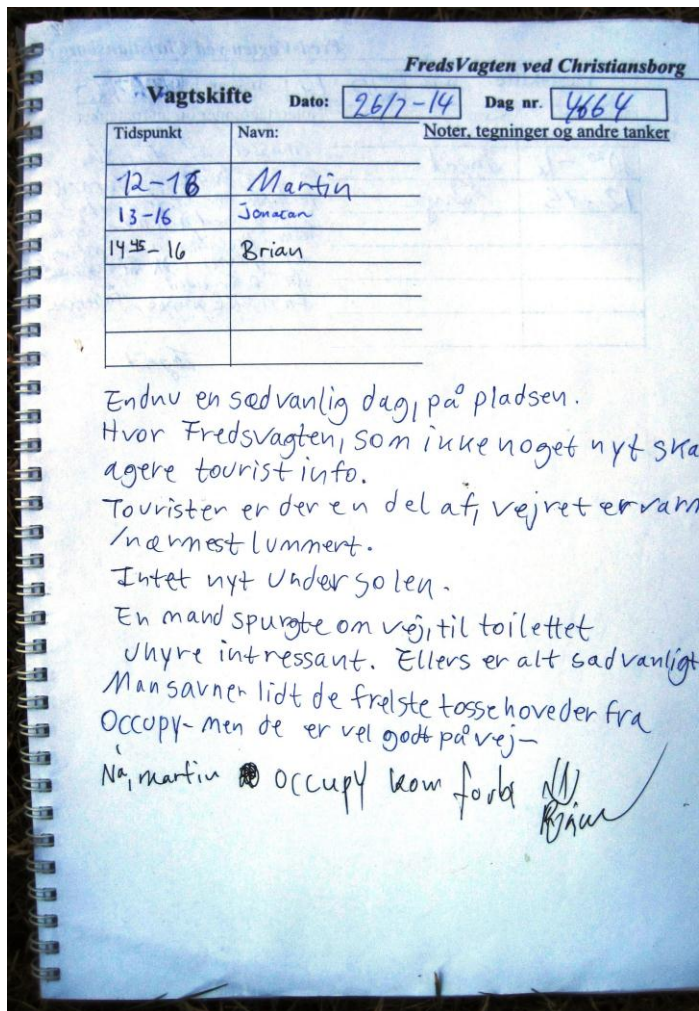 FredsVagten ved Christiansborg
Vagtskifte Dato: 26/7-14 Dag nr. 4664
Tidspunkt Navn: Noter, tegninger og andre tanker
12-16 Martin
13-16 Jonatan
14 45-16 Brian
Endnu en sædvanlig dag, på pladsen.
Hvor Fredsvagten, som ikke noget nyt ska
agere tourist info.
Tourister er der en del af, vejret er varm
/nærmest lummert.
Intet nyt under solen.
En mand spurgte om vej, til toilettet
uhyre intressant. Ellers er alt sædvanligt
Man savner lidt de frelste tossehoveder fra
Occupy- men de er vel godt på vej-
Nå, martin occupy kom forbi
Brian